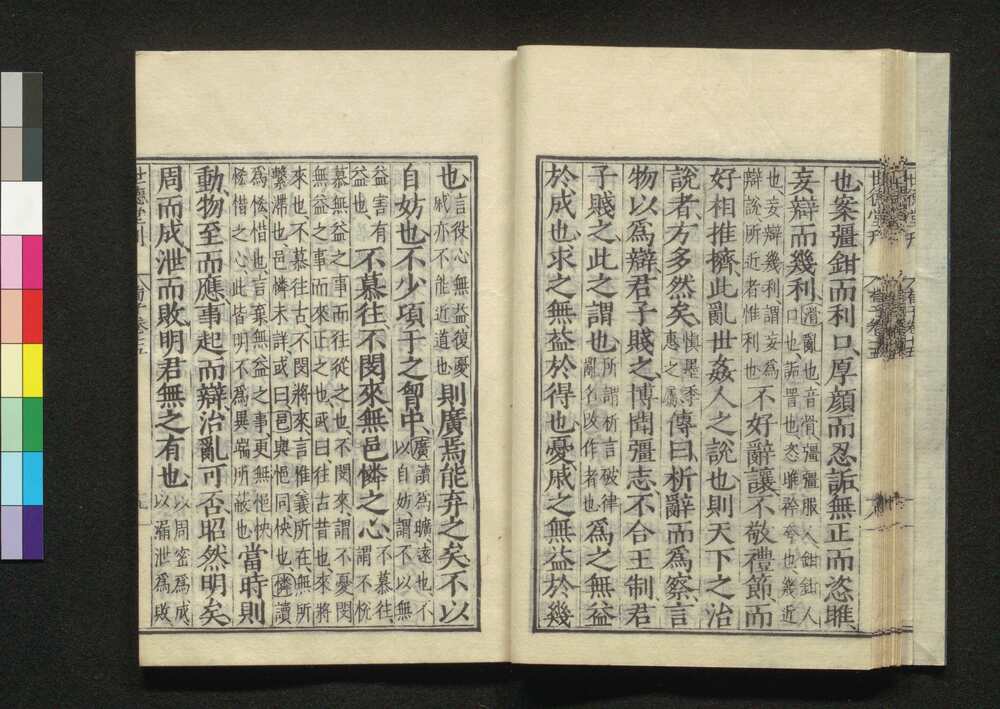 世德堂刊
荀子卷十五
也案彊鉗而利口厚顔而忍詬無正而恣睢
妄辯而幾利滑亂也音骨彊彊服人鉗鉗人口也詬詈也恣睢矜夸也幾近
也妄辯幾利謂妄爲辯說所近者惟利也不好辭讓不敬禮節而
好相推擠此亂世姦人之說也則天下之治
說者方多然矣慎墨季惠之屬傳曰析辭而爲察言
物以爲辯君子賤之博聞彊志不合王制君
子賤之此之謂也所謂析言破律亂名改作者也爲之無益
於成也求之無益於得也憂戚之無益於幾
也言役心無益復憂戚亦不能近道也則廣焉能弃之矣不以
自妨也不少頃干之胷中廣讀爲曠遠也不以自妨謂不以無
益害有益也不慕往不閔來無邑憐之心不慕往謂不恱
慕無益之事而往從之也不閔來謂不憂閔無益之事而來正之也或曰往古昔也來將
來也不慕往古不閔將來言惟義所在無所繫滯也邑憐未詳或曰邑與悒同怏也憐讀
爲悋惜也言棄無益之事更無悒怏悋惜之心此皆明不爲異端所蔽也當時則
動物至而應事起而辯治亂可否昭然明矣
周而成泄而敗明君無之有也以周密爲成以漏泄爲敗
世德堂刊